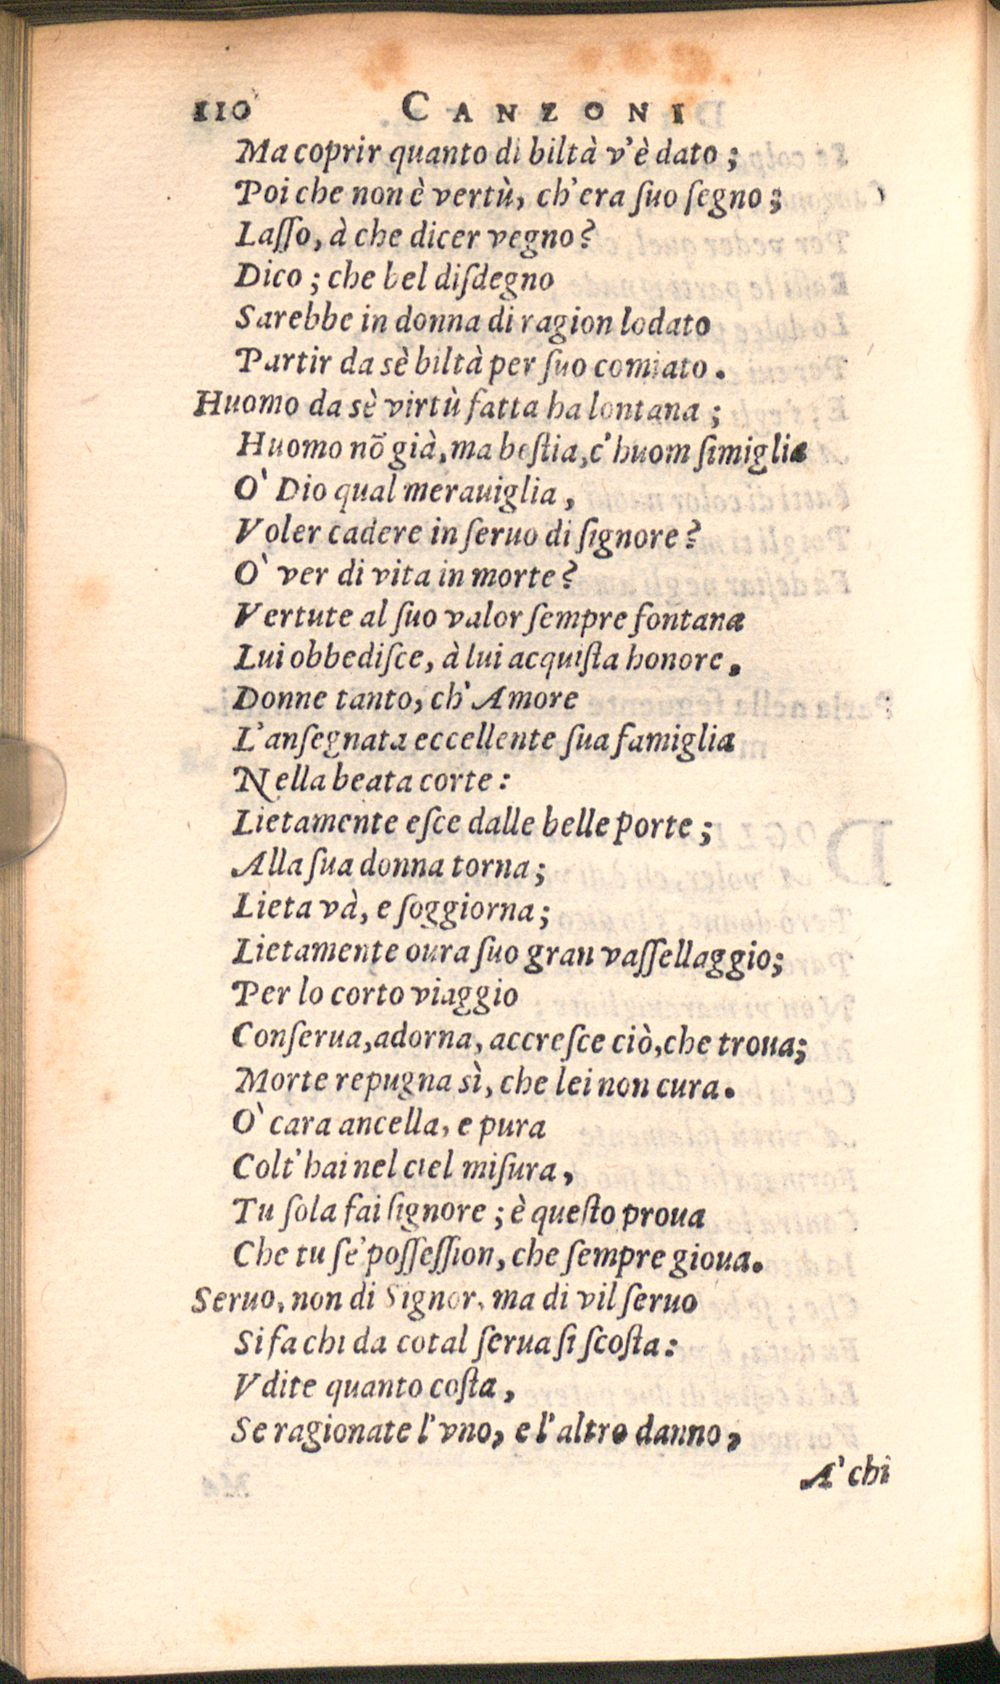 110 CANZONI
Ma coprir quanto di biltà v'è dato;
Poi che non è vertù, ch'era suo ſegno;
Laſſo, à che dicer vegno?
Dico; che bel diſdegno
Sarebbe in donna di ragion lodato
Partir da sè biltà per ſuo comiato.
Huomo da sè virtù fatta ha lontana;
Huomo nō già, ma beſtia, c'huom ſimiglia
O' Dio qual merauiglia,
Voler cadere in ſeruo di ſignore?
O' ver di vita in morte?
Vertute al ſuo valor ſempre fontana
Lui obbediſce, à lui acquiſta honore,
Donne tanto, ch'Amore
L'anſegnata eccellente ſua famiglia
Nella beata corte:
Lietamente eſce dalle belle porte;
Alla ſua donna torna;
Lieta và, e ſoggiorna;
Lietamente oura ſuo gran vaſſellaggio;
Per lo corto viaggio
Conſerua, adorna, accreſce ciò, che troua;
Morte repugna sì, che lei non cura.
O' cara ancella, e pura
Colt'hai nel ciel miſura,
Tu ſola fai ſignore; è queſto proua
Che tu ſe' poſſeſſion, che ſempre gioua.
Seruo, non di Signor, ma di vil ſeruo
Si fa chi da cotal ſerua ſi ſcoſta:
Vdite quanto coſta,
Se ragionate l'vno, e l'altro danno,
A' chi